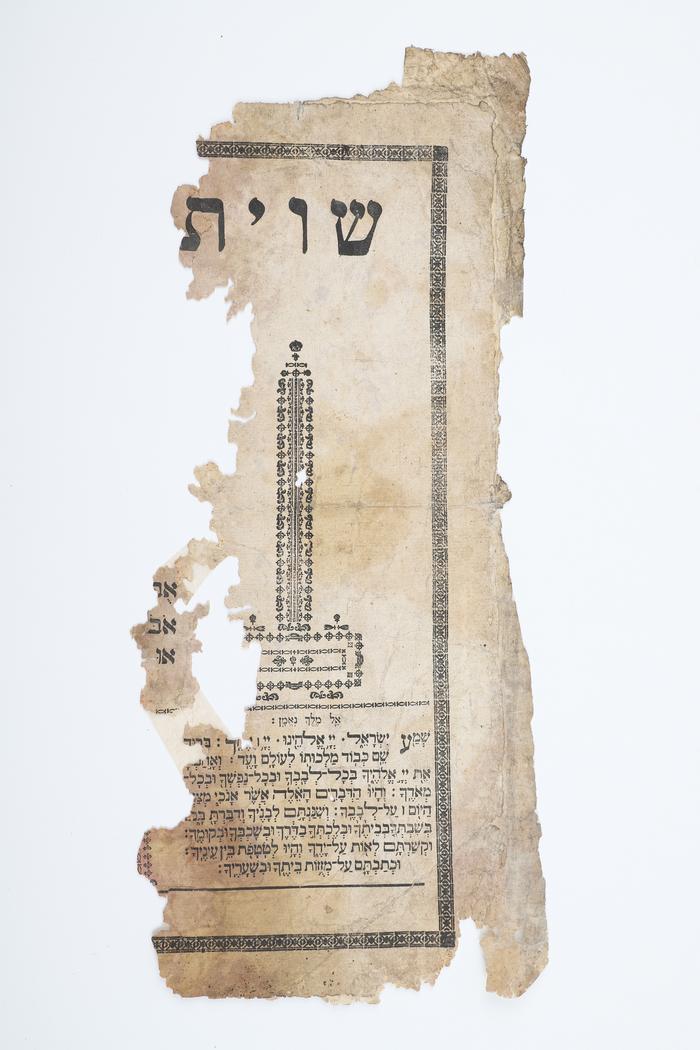 שוית
אל
אב
או
אֵל מֶלֶךְ נֶאֱמָן :
שְׁמַע יִשְׂרָאֵל · יְיָ אֱלֹהֵינוּ · יְיָ
שֵׁם כְּבוֹד מַלְכוּתוֹ לְעוֹלָם וָעֶד :
אֵת יְיָ אֱלֹהֶיךָ בְּכָל-לְבָבְךָ וּבְכָל-נַפְשְׁךָ וּבְכָל-
מְאֹדֶךָ : וְהָיוּ הַדְּבָרִים הָאֵלֶּה אֲשֶׁר אָנֹכִי
הַיּוֹם עַל-לְבָבֶךָ : וְשִׁנַּנְתָּם לְבָנֶיךָ וְדִבַּרְתָּ
בְּשִׁבְתְּךָ בְּבֵיתֶךָ וּבְלֶכְתְּךָ בַדֶּרֶךְ וּבְשָׁכְבְּךָ וּבְקוּמֶךָ :
וּקְשַׁרְתָּם לְאוֹת עַל-יָדֶךָ וְהָיוּ לְטֹטָפֹת בֵּין עֵינֶיךָ :
וּכְתַבְתָּם עַל-מְזוּזֹת בֵּיתֶךָ וּבִשְׁעָרֶיךָ :